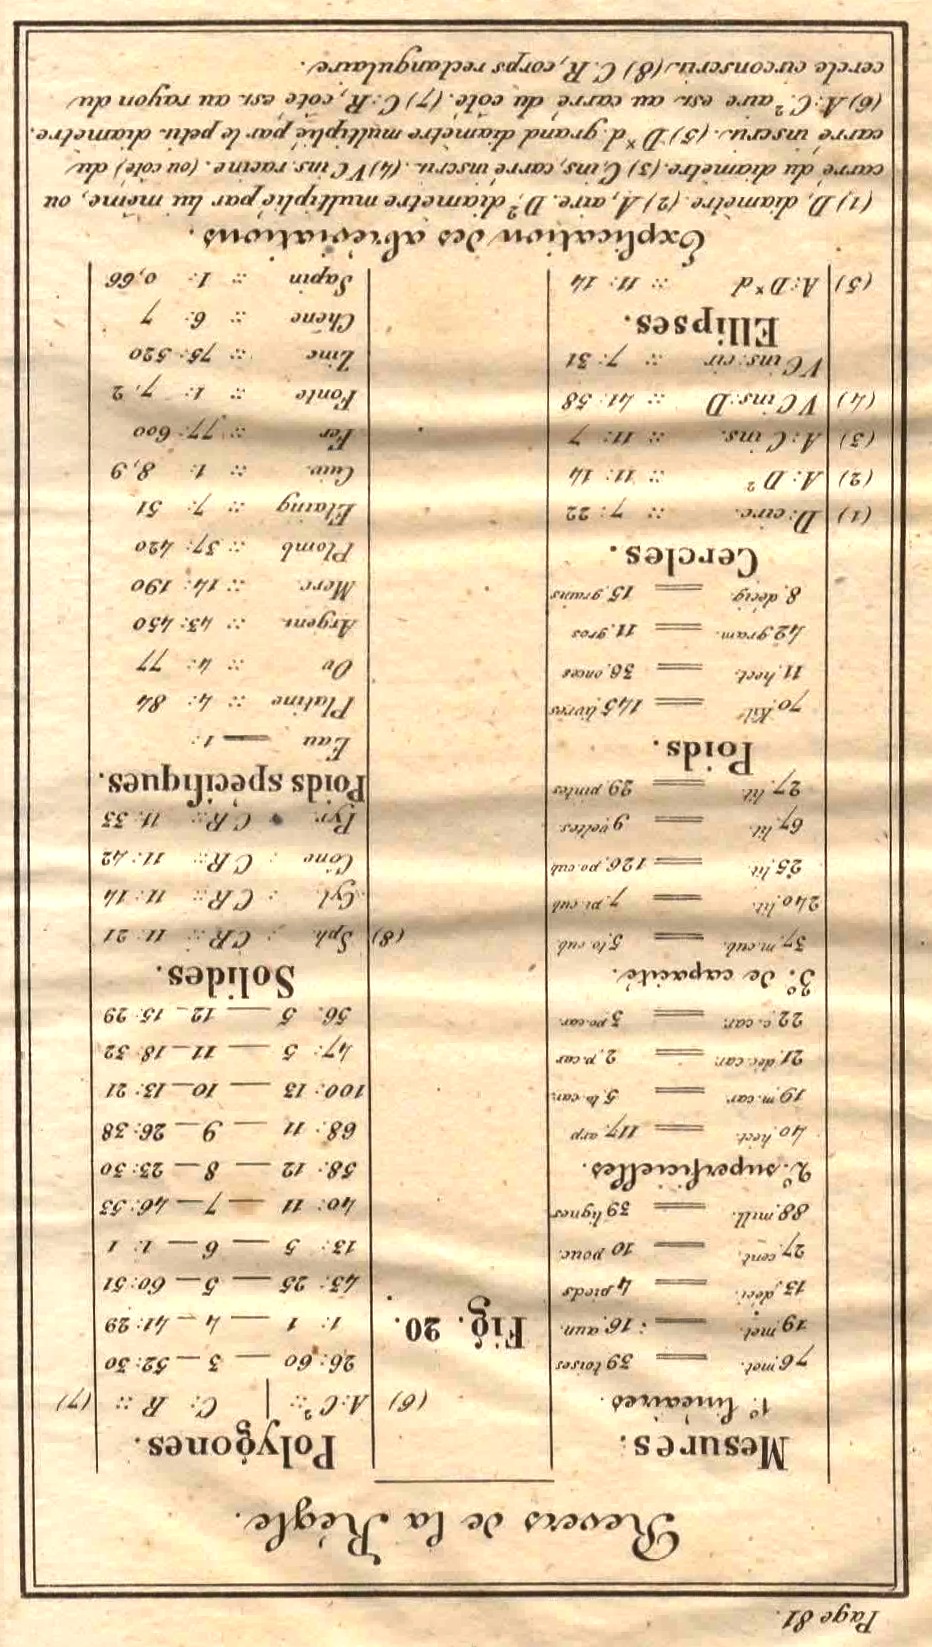 Page 81.
Revers de la Règle.
Mesures:
1.° linéaires
76, met. = 39 toises
19, met. = 16, aun.
13, déci. = 4 pieds
27, cent. = 10 pouc.
88, mill. = 39 lignes
2.° superficielles.
40, hect. = 117, arp
19, m. car. = 5, to. car.
21, déc. car. = 2, p. car
22, c. car. = 3 po. car.
3.° de capacité.
37, m. cub. = 5, to. cub.
240 lit. = 7, pi. cub
25, lit. = 126, po. cub
67, lit. = 9, veltes.
27, lit. = 29 pintes
Poids.
70, Kil. = 143, livres
11, hect. = 36 onces
42 gram. = 11, gros
8, décig. = 15, grains
Cercles.
(1) D: circ. :: 7: 22
(2) A: D² :: 11: 14
(3) A: C ins. :: 11: 7
(4) VC ins: D :: 41: 58
VC ins: cir :: 7: 31
Ellipses.
(5) A: D×d :: 11: 14
Fig. 20.
Polygones.
(6) A: C² :: | C: R :: (7)
26: 60 — 3 — 52: 30
1: 1 — 4 — 41: 29
43: 25 — 5 — 60: 51
13: 5 — 6 — 1: 1
40: 11 — 7 — 46: 53
58: 12 — 8 — 23: 30
68: 11 — 9 — 26: 38
100: 13 — 10 — 13: 21
47: 5 — 11 — 18: 32
56: 5 — 12 — 15: 29
Solides.
(8) Sph. : CR :: 11: 21
Cyl. : CR :: 11: 14
Cone : CR :: 11: 42
Pyr. : CR :: 11: 33
Poids spécifiques.
Eau — 1:
Platine :: 4: 84
Or :: 4: 77
Argent :: 43: 450
Merc. :: 14: 190
Plomb :: 37: 420
Etaing :: 7: 51
Cuiv. :: 1: 8,9
Fer :: 77: 600
Fonte :: 1: 7,2
Zinc :: 75: 520
Chêne :: 6: 7
Sapin :: 1: 0,66
Explication des abréviations.
(1) D, diamètre. (2) A, aire. D², diamètre multiplié par lui même, ou
carré du diamètre. (3) C, ins, carré inscrit. (4) VC ins. racine. (ou coté) du
carré inscrit. (5) D×d, grand diamètre multiplié par le petit diamètre.
(6) A: C², aire est au carré du coté. (7) C: R, coté est au rayon du
cercle circonscrit. (8) C. R, corps rectangulaire.